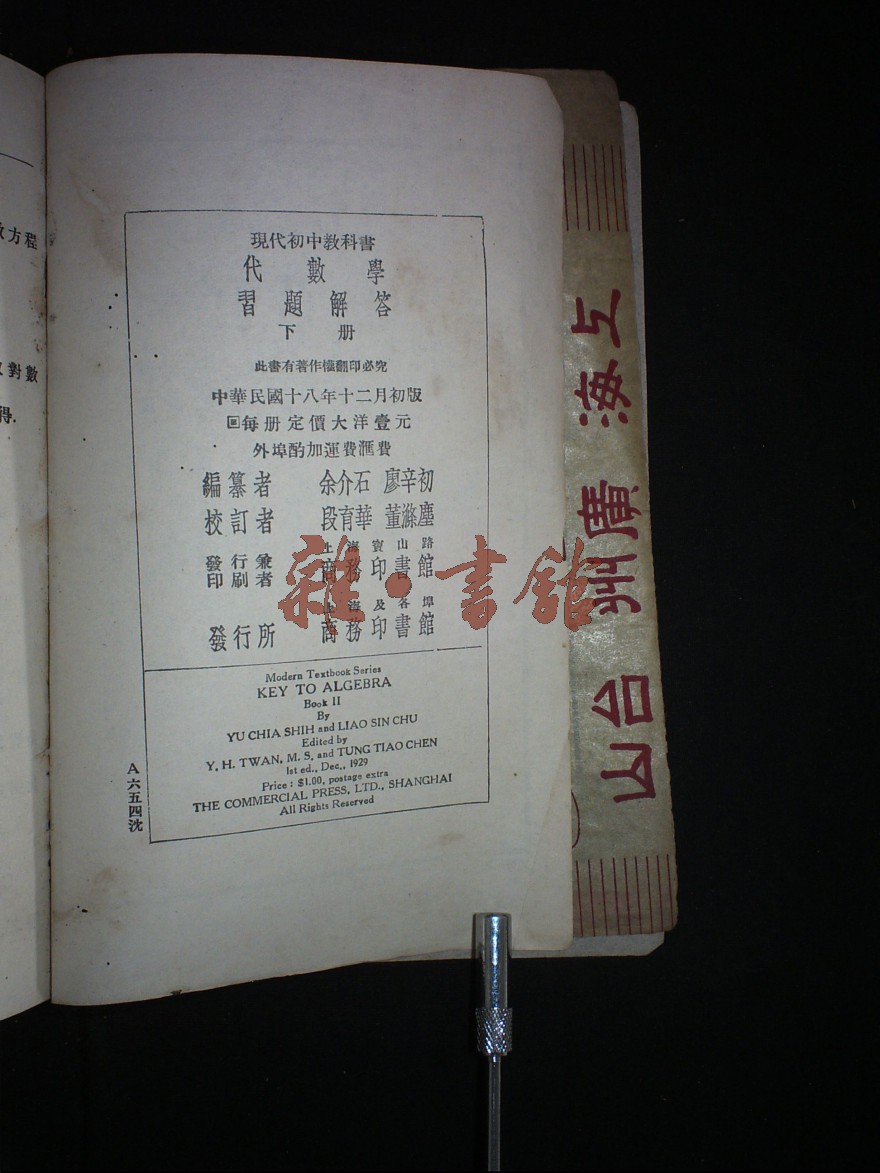 方程
對數
得.
現代初中教科書
代數學
習題解答
下册
此書有著作權翻印必究
中華民國十八年十二月初版
回每册定價大洋壹元
外埠酌加運費滙費
編纂者 余介石 廖辛初
校訂者 段育華 董滌塵
上海寶山路
發行兼印刷者 商務印書館
上海及各埠
發行所 商務印書館
雜·書館
Modern Textbook Series
KEY TO ALGEBRA
Book II
By
YU CHIA SHIH and LIAO SIN CHU
Edited by
Y. H. TWAN, M. S. and TUNG TIAO CHEN
1st ed., Dec., 1929
Price: $1.00, postage extra
THE COMMERCIAL PRESS, LTD., SHANGHAI
All Rights Reserved
A六五四沈
上海 廣州 台山